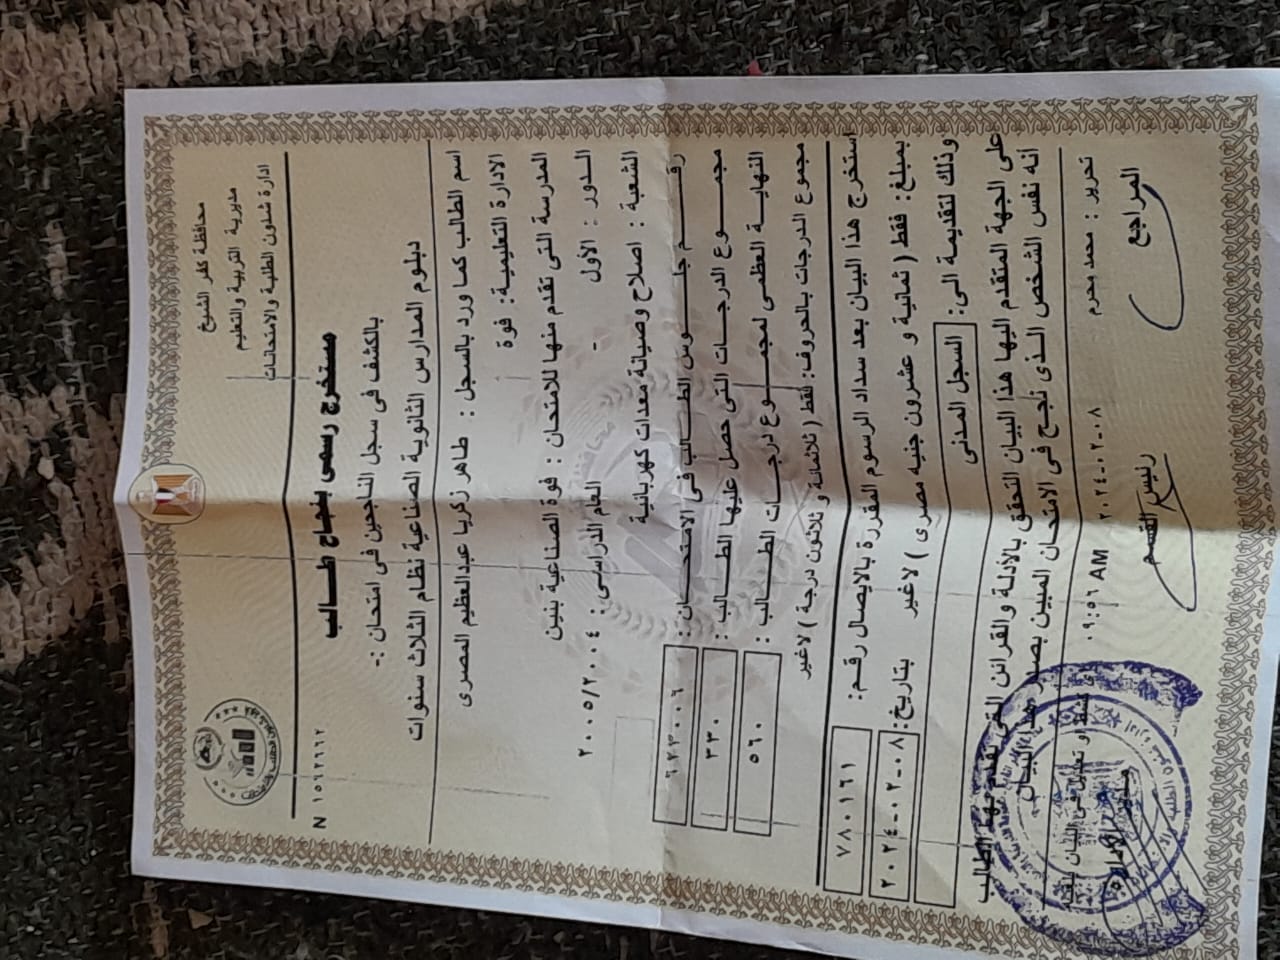 محافظة كفر الشيخ
مديرية التربية والتعليم
ادارة شئون الطلبة والامتحانات
مستخرج رسمى بنجاح طــالب
N ١٥٦٢٦٦٢
بالكشف فى سجل الناجحين فى امتحان :-
دبلوم المدارس الثانوية الصناعية نظام الثلاث سنوات
اسم الطالب كما ورد بالسجل : طاهر زكريا عبدالعظيم المصرى
الادارة التعليمية: فوة
المدرسة التى تقدم منها للامتحان : فوة الصناعية بنين
الـدور : الأول - العام الدراسى : ٢٠٠٥/٢٠٠٤
الشعبة : اصلاح وصيانة معدات كهربائية
رقــم جلــوس الطــالب فـى الامتحــان :
مجمــوع الدرجــات التى حصل عليها الطــالب : ٣٣٠
النهايــة العظمـى لمجمــوع درجــات الطــالب : ٥٦٠
مجموع الدرجات بالحروف: فقط ( ثلاثمائة و ثلاثون درجة ) لاغير
استخرج هذا البيان بعد سداد الرسوم المقررة بالايصال رقم: ٧٨٠١٦١
بمبلغ: فقط ( ثمانية و عشرون جنيه مصرى ) لاغير بتاريخ: ٢٠٢٤-٠٢-٠٨
وذلك لتقديمة الى: السجل المدنى
على الجهة المتقدم اليها هذا البيان التحقق بالأدلة والقرائن التى تقدم بها الطالب
انه نفس الشخص الذى نجح فى الامتحان المبين بصدر هذا البيان
تحرير : محمد محرم ٢٠٢٤-٠٢-٠٨ ٠٩:٥٦ AM كشط او تعديل فى البيان
المراجع رئيس القسم مدير الادارة